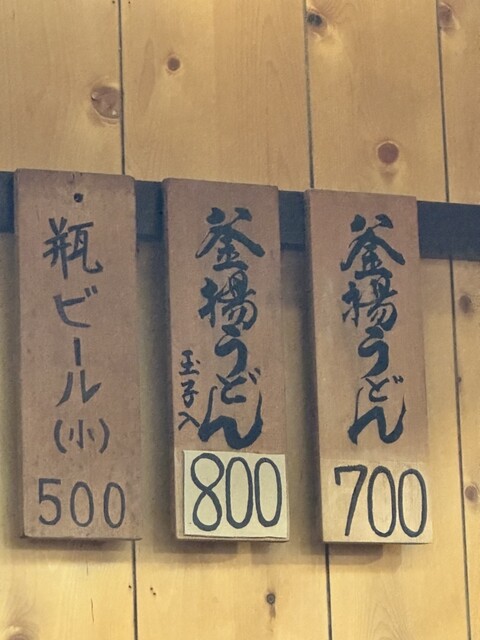 釜揚うどん
700
釜揚うどん
玉子入
800
瓶ビール(小)
500